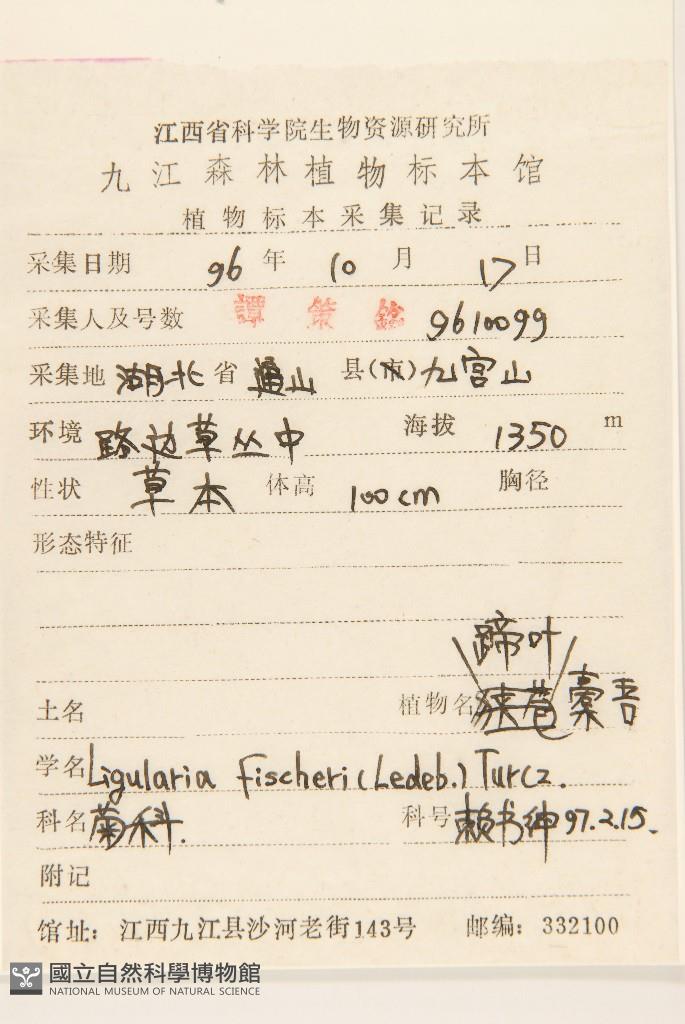 江西省科学院生物资源研究所
九江森林植物标本馆
植物标本采集记录
采集日期 96 年 10 月 17 日
采集人及号数 譚策銘 9610099
采集地 湖北 省 通山 县(市) 九宫山
环境 路边草丛中 海拔 1350 m
性状 草本 体高 100cm 胸径
形态特征
蹄叶
土名 植物名 橐吾
学名 Ligularia Fischeri (Ledeb.) Turcz.
科名 菊科. 科号 赖书绅 97.2.15.
附记
馆址: 江西九江县沙河老街143号 邮编: 332100
國立自然科學博物館
NATIONAL MUSEUM OF NATURAL SCIENCE